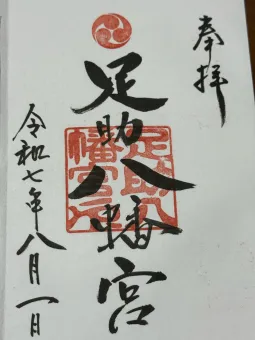 奉拝
足助八幡宮
足助八幡宮之印
令和七年八月一日